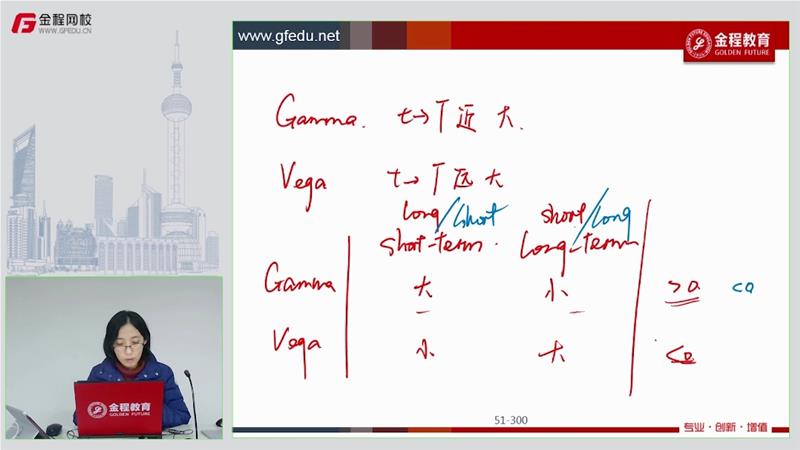 金程网校
WWW.GFEDU.CN
www.gfedu.net
金程教育
GOLDEN FUTURE
Gamma. t→T 近 大.
Vega t→T 远 大
long/short short/long
short-term. long-term
Gamma 大 小 >0 <0
Vega 小 大 <0
金程教育
GOLDEN FUTURE
51-300
专业·创新·增值